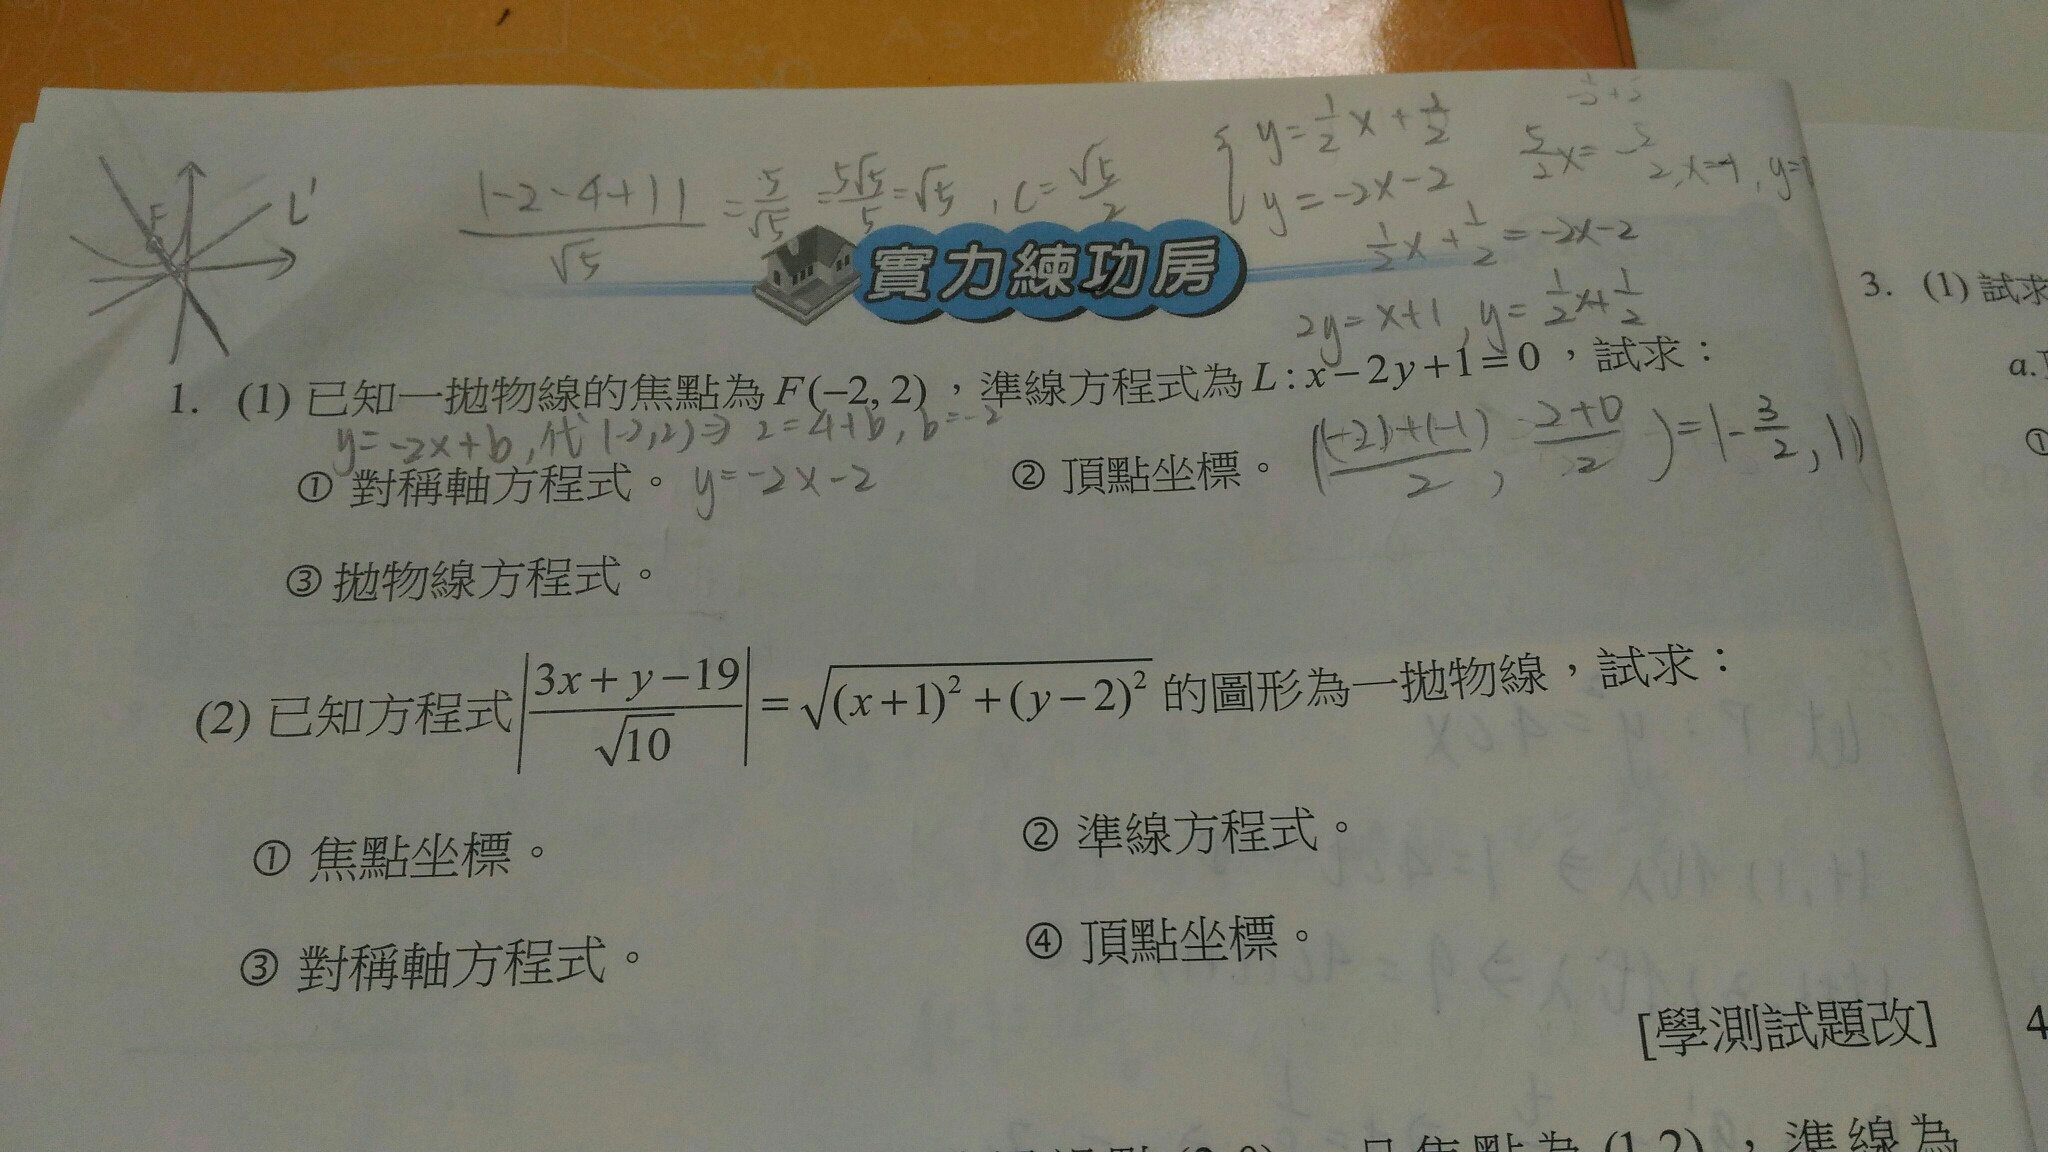 L'
F
|-2-4+1|/√5 = 5/√5 = 5√5/5 = √5 , c = √5/2
{ y = 1/2 x + 1/2
y = -2x-2
1/2 x + 1/2 = -2x-2
2y = x+1 , y = 1/2 x + 1/2
實力練功房
1. (1) 已知一拋物線的焦點為 F(−2, 2) ,準線方程式為 L : x − 2y + 1 = 0 ,試求:
y = -2x+b , 代 (-2,2) ⇒ 2=4+b , b=-2
① 對稱軸方程式。 y = -2x-2
② 頂點坐標。 ( (-2)+(-1)/2 , 2+0/2 ) = (-3/2 , 1)
③ 拋物線方程式。
(2) 已知方程式 |(3x + y − 19)/√10| = √((x+1)² + (y−2)²) 的圖形為一拋物線,試求:
① 焦點坐標。
② 準線方程式。
③ 對稱軸方程式。
④ 頂點坐標。
[學測試題改]
3. (1) 試求
a.
①
4
且焦點為 (1,2) ,準線為